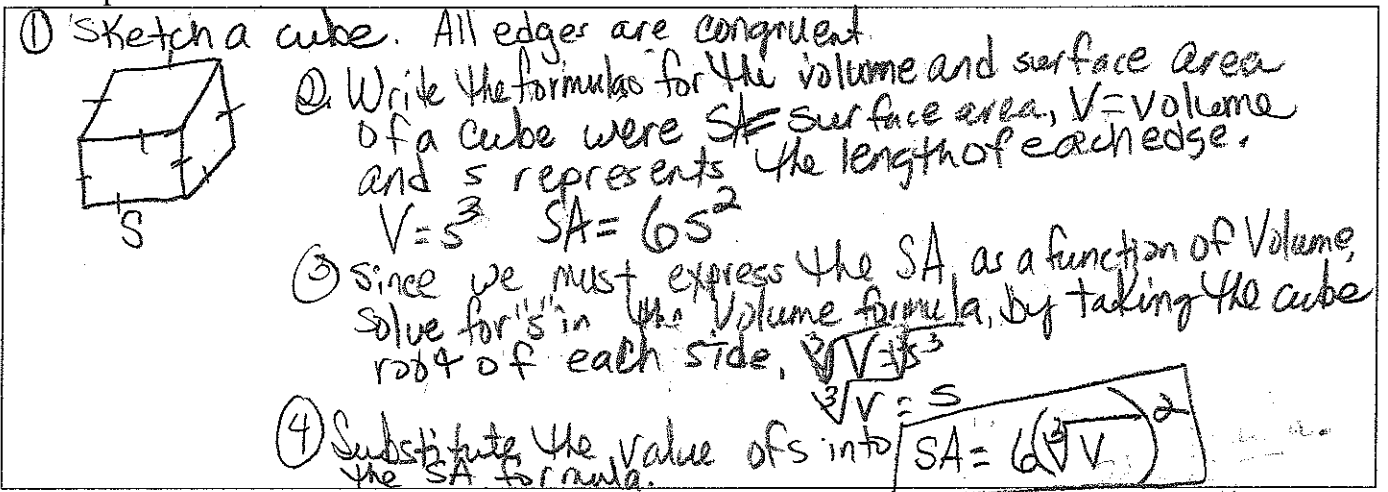 ① Sketch a cube. All edges are congruent.
S
2. Write the formulas for the volume and surface area
of a cube were SA= surface area, V=volume
and s represents the length of each edge.
V=s³ SA= 6s²
③ Since we must express the SA as a function of Volume,
solve for "s" in the Volume formula, by taking the cube
root of each side. ∛V=∛s³
∛V = s
④ Substitute the value of s into SA= 6(∛V)²
the SA formula.